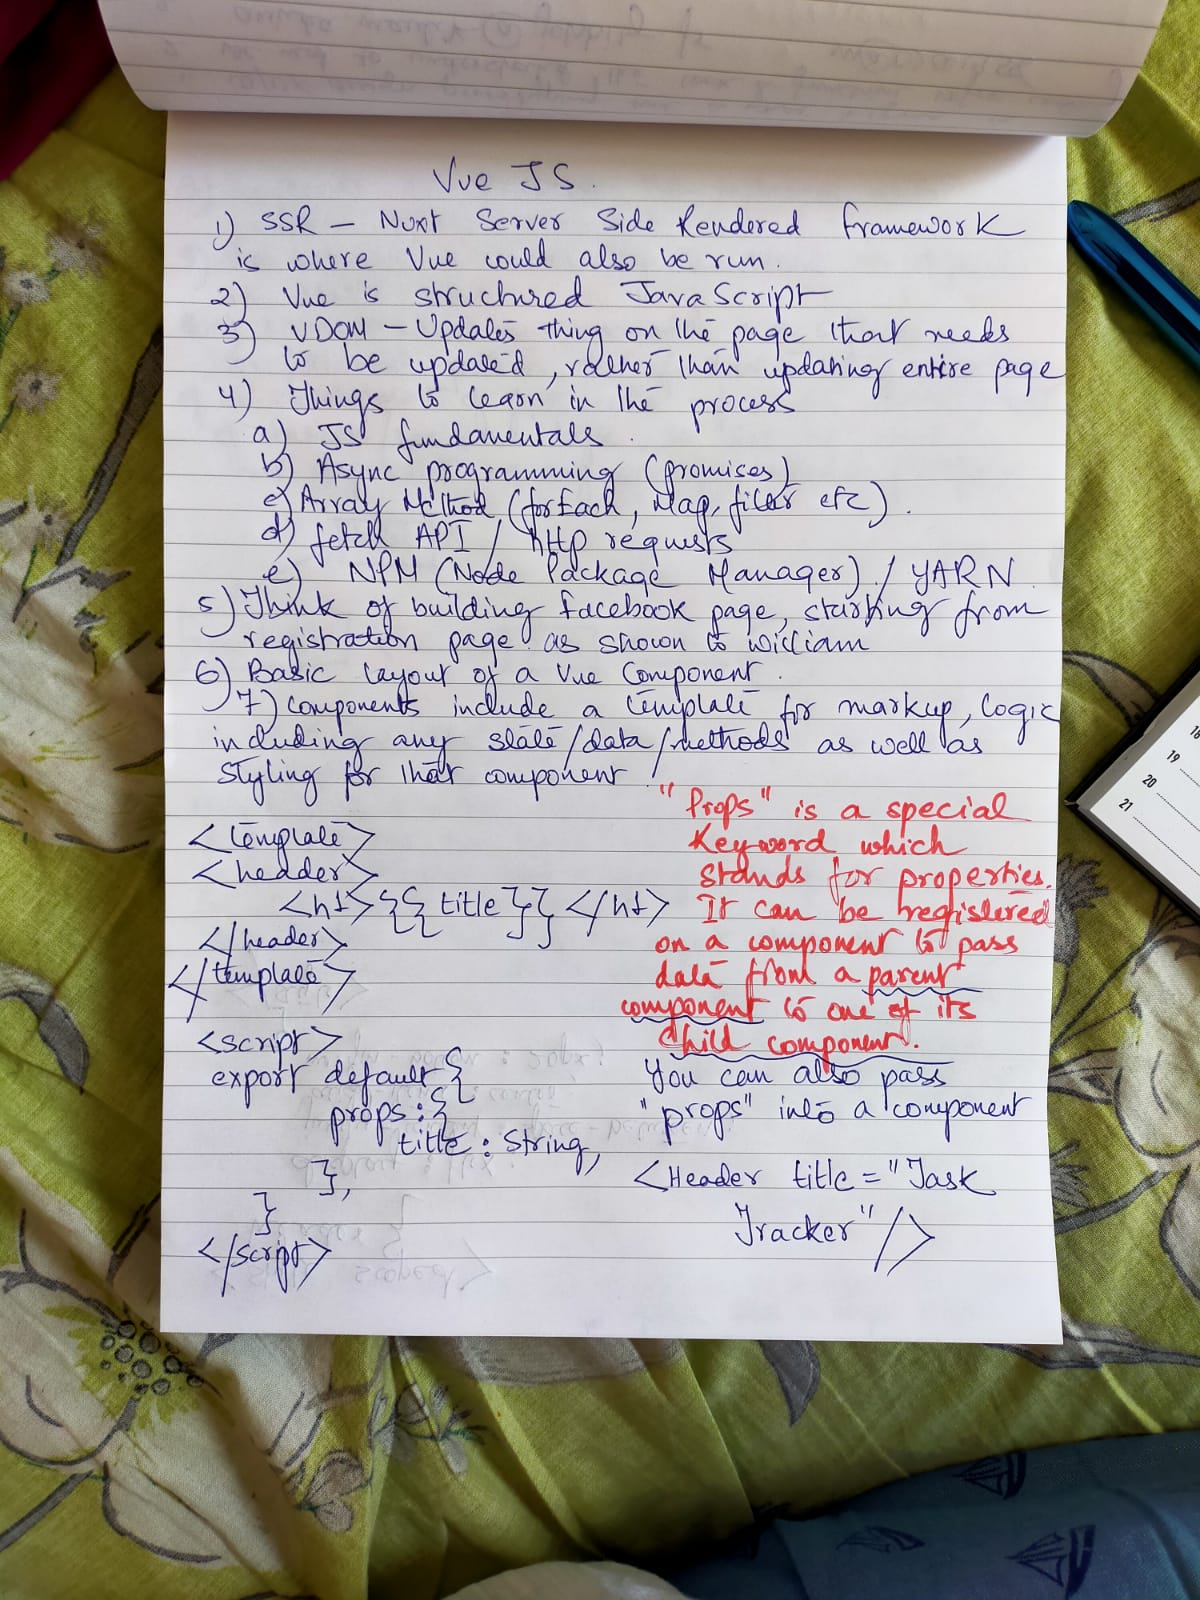 Vue JS.
1) SSR – Nuxt Server Side Rendered framework
is where Vue could also be run.
2) Vue is structured JavaScript
3) VDOM – Updates thing on the page that needs
to be updated, rather than updating entire page
4) Things to learn in the process
a) JS fundamentals.
b) Async programming (promises)
c) Array Method (forEach, Map, filter etc).
d) fetch API / http requests
e) NPM (Node Package Manager) / YARN.
5) Think of building facebook page, starting from
registration page as shown to william
6) Basic layout of a Vue Component.
7) Components include a template for markup, logic
including any state/data/methods as well as
styling for that component.
<template>
<header>
<h1>{{ title }}</h1>
</header>
</template>
<script>
export default {
props: {
title: String,
},
}
</script>
"Props" is a special
Keyword which
stands for properties.
It can be registered
on a component to pass
data from a parent
component to one of its
child component.
You can also pass
"props" into a component
<Header title = "Task
Tracker" />
18
19
20
21